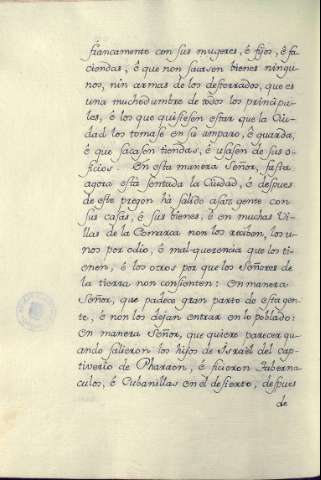 francamente con sus mugeres, é fijos, é fa-
ciendas, é que non sacasen bienes ningu-
nos, nin armas de los desterrados, que es
una muchedumbre de todos los principa-
les, é los que quisiesen estar que la Ciu-
dad los tomase en su amparo, é guarda,
é que sacasen tiendas, é usasen de sus o-
ficios. En esta manera Señor, fasta
agora está sentada la Ciudad, é despues
de este pregon há salido asáz gente con
sus casas, é sus bienes, é en muchas Vi-
llas de la Comarca non los reciben, los u-
nos por odio, é mal-querencia que los ti-
enen, é los otros por que los Señores de
la tierra non consienten: En manera
Señor, que padece gran parte de esta gen-
te, é non los dejan entrar en lo poblado:
En manera Señor, que quiere parecer qu-
ando salieron los hijos de Israèl del cap-
tiverio de Pharaon, é ficieron Taberna-
culos, é Cubanillas en el desierto, despues
de